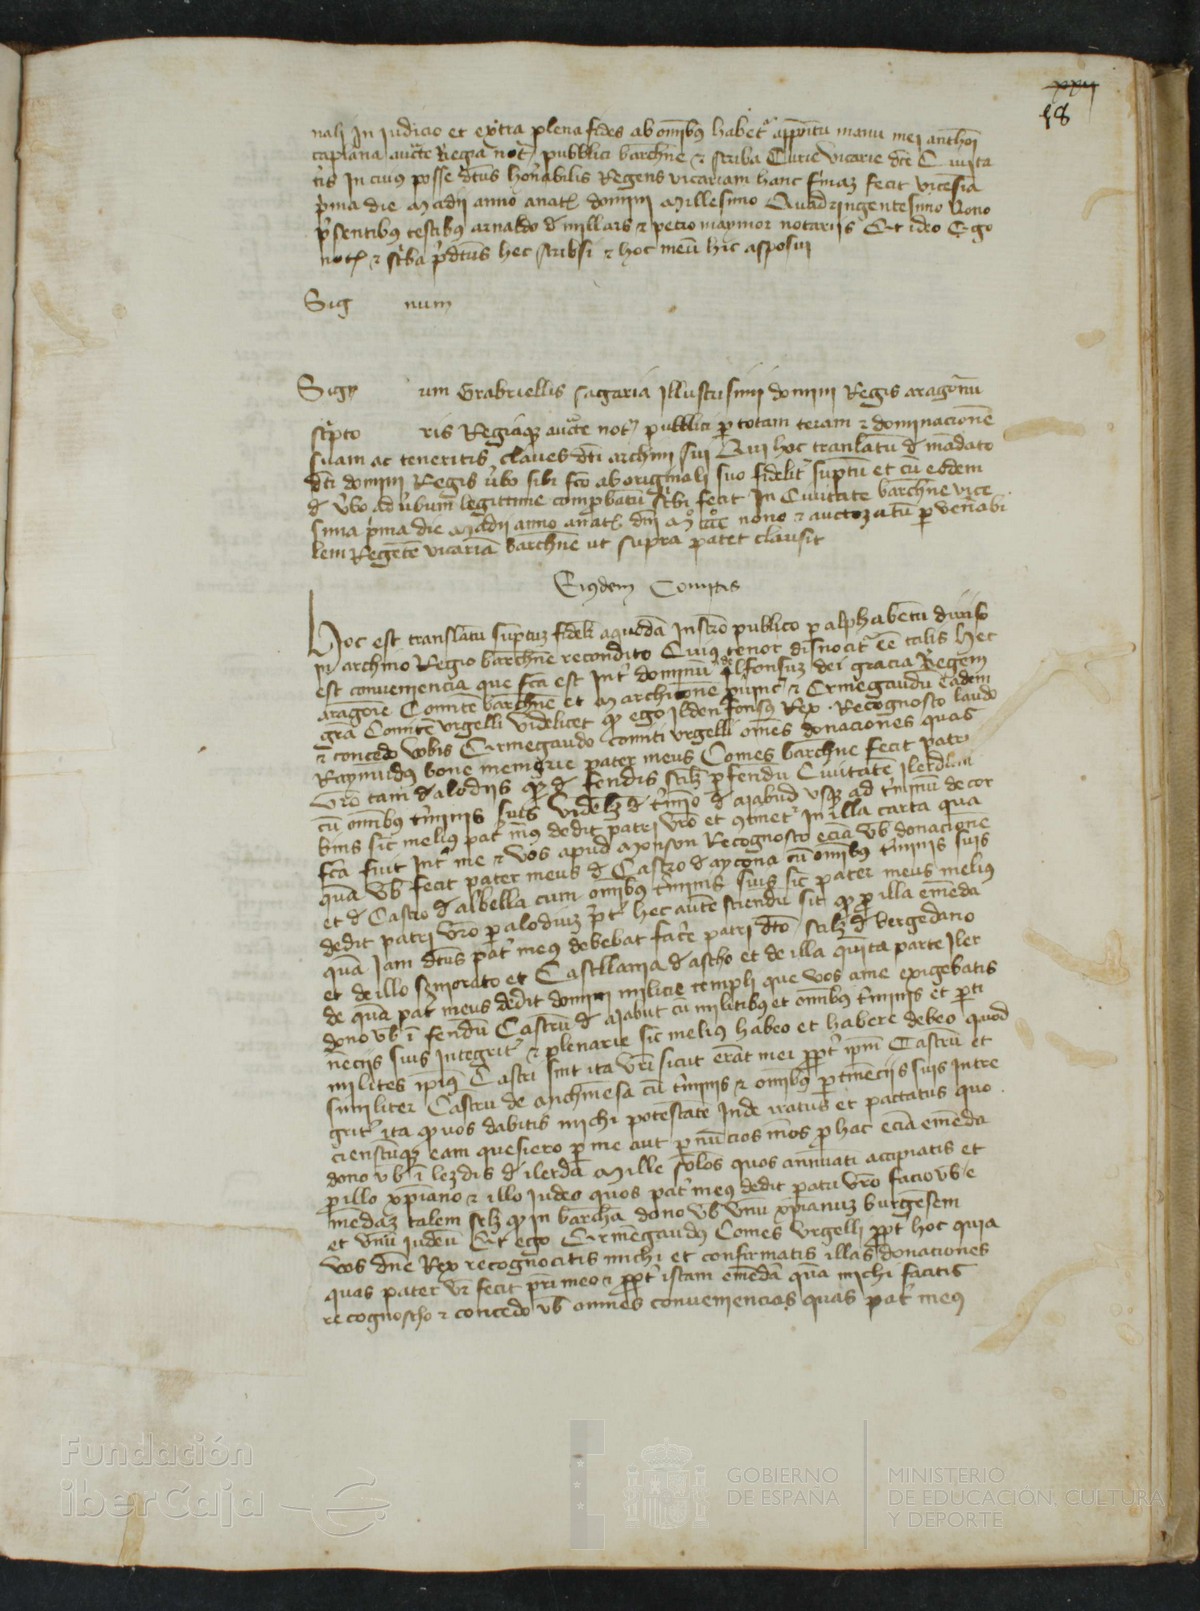 xxij
18
nali in iudicio et extra plena fides ab omibus habet appoitu manu mei anthoi
capiana aucte Regia not publici barchne et scriba Curie vicarie dce Civita
tis In cuius posse dtus honrabilis Regens vicariam hanc firmaz fecit vicesia
prima die Madij anno anat domini Millesimo Quadringentesimo Nono
presentibus testibus arnaldo d millars et petro maymor notariis Et ideo Ego
not et scriba predtus hec scribsi et hoc meu hic asposui
Sig num
Sig num Grabriellis sagaria Illustrisimi domini Regis aragonu
scripto ris Regiaque aucte not publici per totam teram et dominacione
suam ac tenentis claves dti archivi sui Qui hoc tranlatu de madato
dti domini Regis verbo sibi fco ab originali suo fidelit suptu et cu eodem
de verbo ad verbum legittime comprobatu scribi fecit In Civitate barchne vice
sima prima die Madij anno anat dni Mo cccc nono et auctorizatu per venerabi
lem Regete vicaria barchne ut supra patet clausit
Eiusdem Comitis
Hoc est translatu suptuz fidelr aquoda Instro publico per alphabetu diviso
in archivio Regio barchne recondito Cuius tenor dinocitr ee talis Hec
est conveniencia que fca est Int dominu Ildefonsuz dei gracia Regem
aragone Comite barchne et Marchione provinc et Ermegaudu eadem
gra Comite Urgelli videlicet quod ego Ildenfonsus Rex Recognosco laudo
et concedo vobis Ermegaudo comiti urgelli omes donaciones quas
Raymudus bone memorie pater meus Comes barchne fecit patri
vro tam de alodijs quam de feudis scilz per feudu Civitate Ilerde
cu omibus terminis suis videlz de termio de ajabud usque ad terminu de cor
bins sic melius pat meus dedit patri vro et 9tinet In illa carta qua
fca fuit Int me et vos apud Monson Recognosco ecia vb donacione
qua vb fecit pater meus de Castro de aytona cu omibus terminis suis
et de Castro de albella cum omibus terminis suis sic pater meus melius
dedit patri vro per alodiuz pret hec aute sciendu sit quod pro illa emeda
qua iam dtus pat meus debebat facere patri dto scilz de bergedano
et de illo seniorato et Castllania de ascho et de illa quita parte Iler
de qua pat meus dedit domini milicie templi que vos ame exigebatis
dono vb i feudu Castru de ajabut cu militibus et omibus terminis et perti
neciis suis Integrit et plenarie sic melius habeo et habere debeo quod
milites ipius Castri sint ita vri sicut erat mei propt ipm Castru et
similiter Castru de anchmesa cu terminis et omibus pertineciis suis Intre
grit ita quod vos dabitis michi potestate inde iratus et paccatus quo
cienscuque eam quesiero per me aut per nucios meos pro hac ecia emeda
dono vb i lezdis de ilerda Mille solos quos annuati accipiatis et
pro illo xpiano et illo Iudeo quos pat meus dedit patri vro facio vb e
medaz talem scilz quod in barcha dono vb unu xpianuz burgesem
et unu iudeu Et ego Ermegaudus Comes Urgelli propt hoc quia
vos dne Rex recognocitis michi et confirmatis illas donaciones
quas pater vr fecit patri meo et propt istam emeda qua michi facitis
recognosco et concedo vb omnes conveniencias quas pat meus
Fundación
iberCaja
GOBIERNO
DE ESPAÑA
MINISTERIO
DE EDUCACIÓN, CULTURA
Y DEPORTE